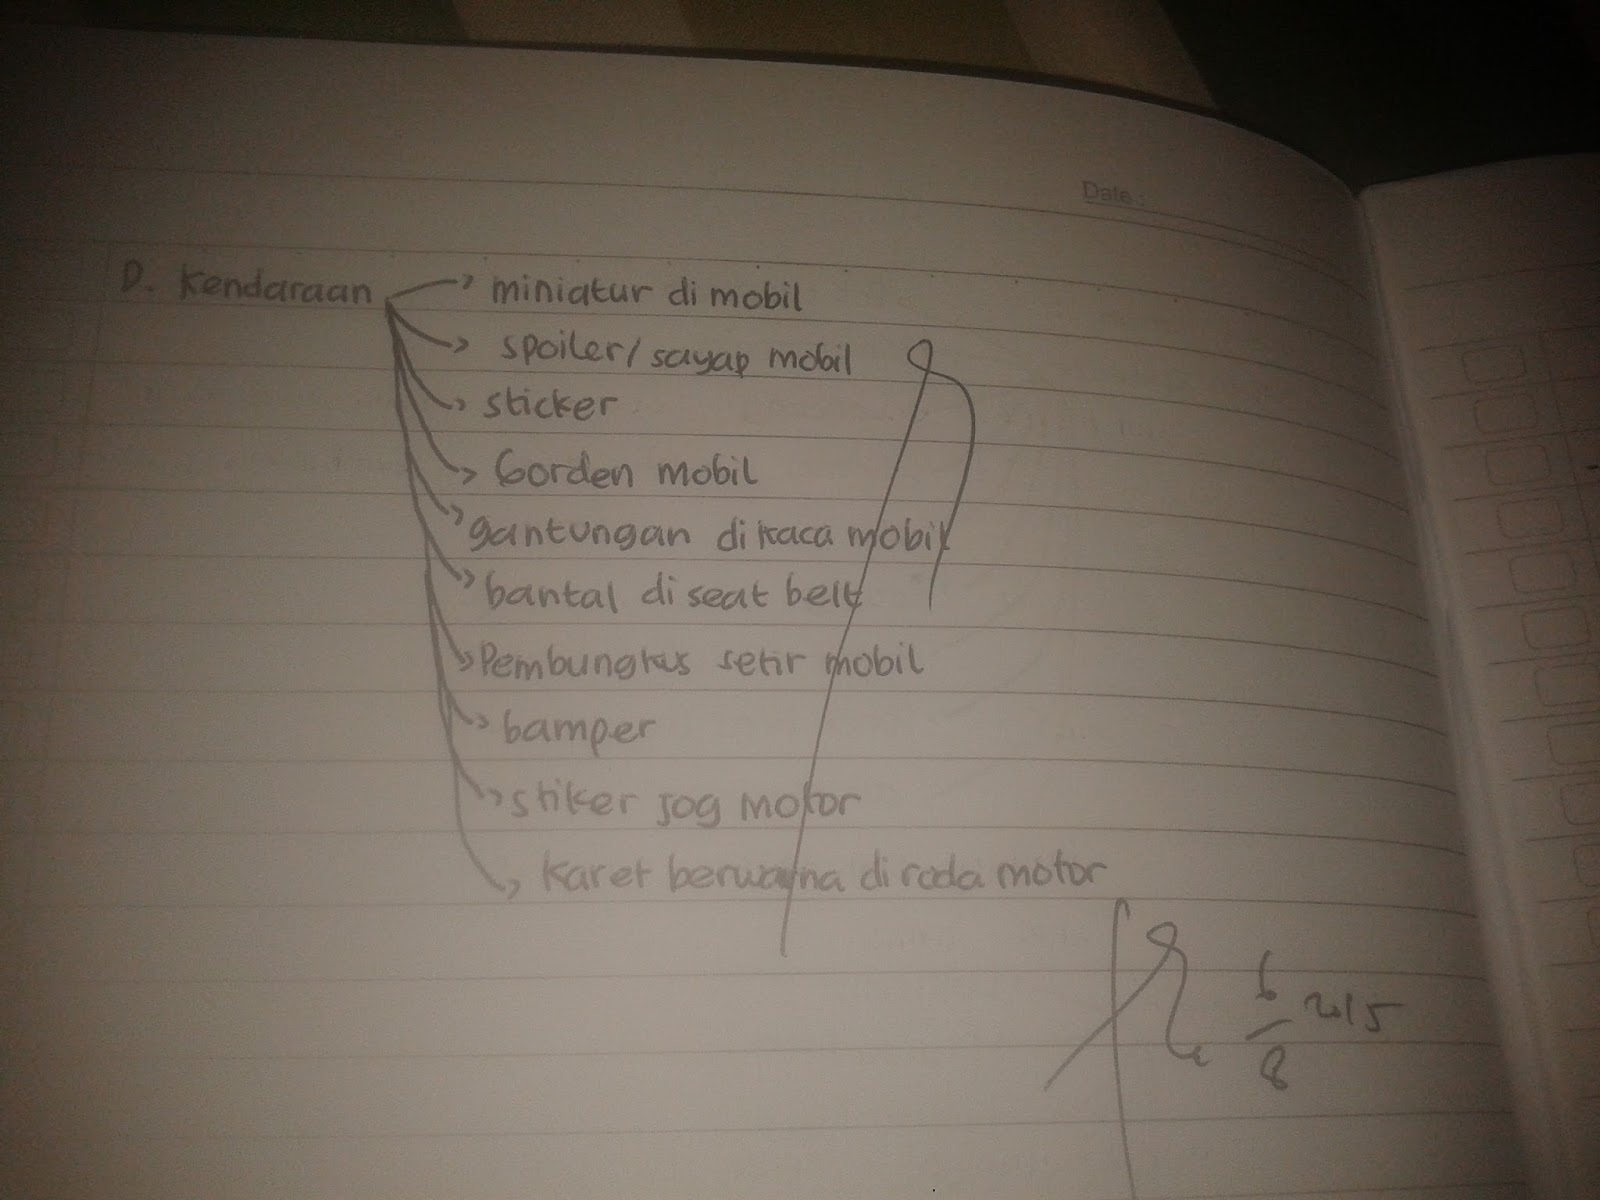 Date :
D. Kendaraan → miniatur di mobil
→ spoiler/ sayap mobil
→ sticker
→ Gorden mobil
→ gantungan di kaca mobil
→ bantal di seat belt
→ Pembungkus setir mobil
→ bamper
→ stiker jog motor
→ Karet berwarna di roda motor
6/8 2015